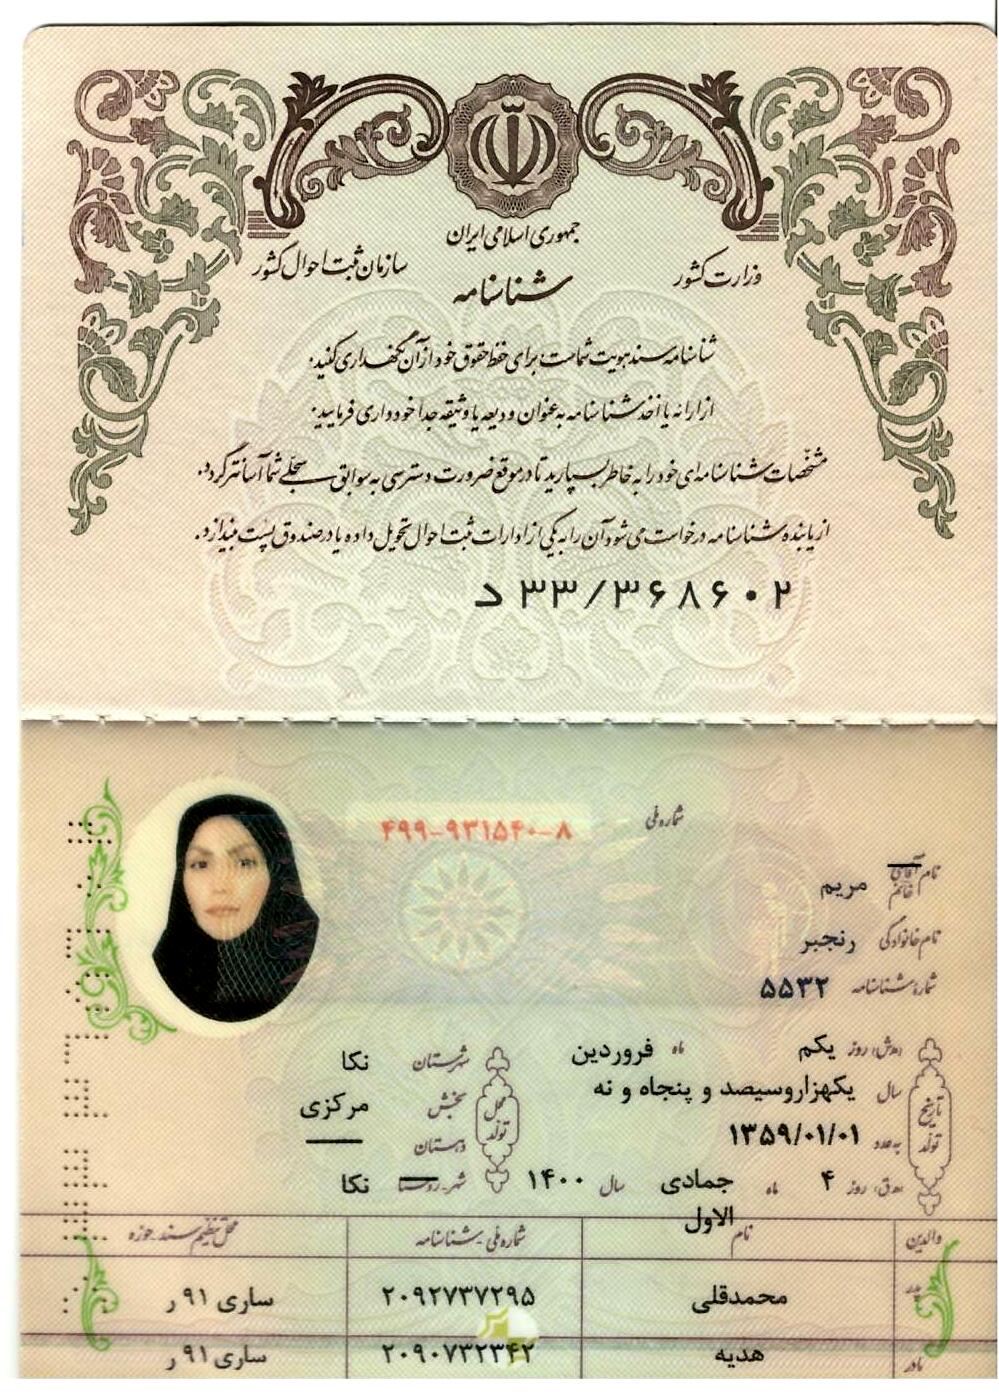 جمهوری اسلامی ایران
وزارت کشور
سازمان ثبت احوال کشور
شناسنامه
شناسنامه سند هویت شماست برای حفظ حقوق خود از آن نگهداری کنید.
از ارائه یا اخذ شناسنامه به عنوان ودیعه یا وثیقه جدا خودداری فرمایید.
مشخصات شناسنامه‌ای خود را به خاطر بسپارید تا در موقع ضرورت دسترسی به سوابق سجلی شما آسانتر گردد.
از یابنده شناسنامه درخواست می شود آن را به یکی از ادارات ثبت احوال تحویل داده یا در صندوق پست بیندازد.
د ۳۳/۳۶۸۶۰۲
شماره ملی ۴۹۹-۹۳۱۵۴۰-۸
نام آقای خانم مریم
نام خانوادگی رنجبر
شماره شناسنامه ۵۵۳۲
تاریخ تولد
(ه‍.ش) روز یکم ماه فروردین
سال یکهزاروسیصد و پنجاه و نه
به عدد ۱۳۵۹/۰۱/۰۱
(ه‍.ق) روز ۴ ماه جمادی الاول سال ۱۴۰۰
محل تولد
شهرستان نکا
بخش مرکزی
دهستان ——
شهر-روستا نکا
والدین نام شماره ملی-شناسنامه محل تنظیم سند-حوزه
پدر محمدقلی ۲۰۹۲۷۳۷۲۹۵ ساری ۹۱ ر
مادر هدیه ۲۰۹۰۷۳۲۳۴۲ ساری ۹۱ ر